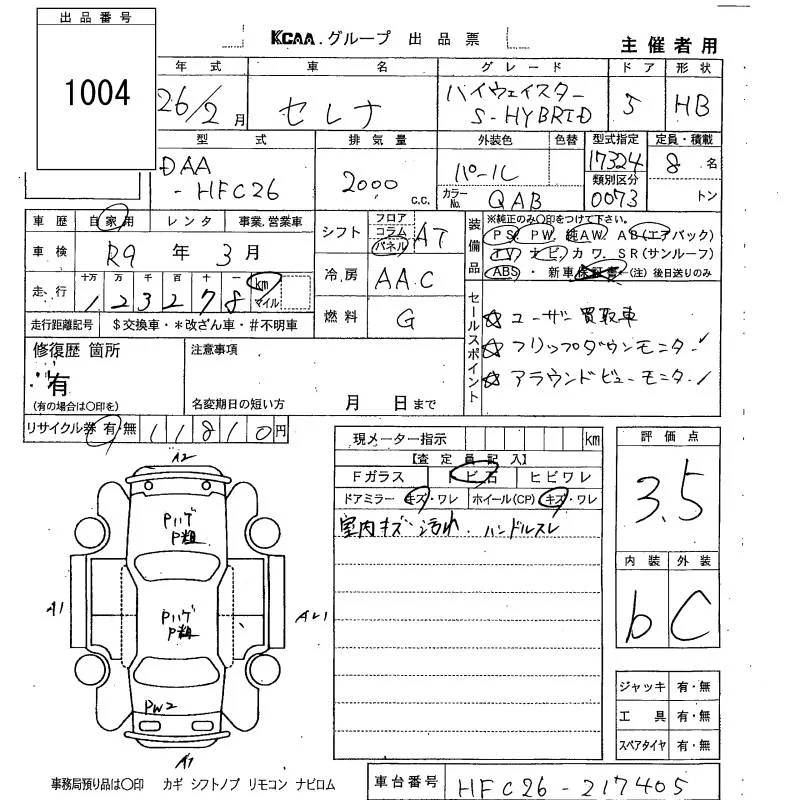 出品番号
1004
KCAA.グループ 出品票
主催者用
年式 車名 グレード ドア 形状
26/2月 セレナ ハイウェイスター S-HYBRID 5 HB
型式 排気量 外装色 色替 型式指定 定員・積載
DAA-HFC26 2000 c.c. パール 17324 8名
カラーNo. QAB 類別区分 0073 トン
車歴 自家用 レンタ 事業.営業車
車検 R9年3月
走行 十万 万 千 百 十 一 km マイル
123278
走行距離記号 $交換車・*改ざん車・#不明車
シフト フロア コラム パネル AT
冷房 AAC
燃料 G
装備品 ※純正のみ○印をつけて下さい。
PS PW 純AW. AB(エアバック)
TV ナビ カワ. SR(サンルーフ)
ABS・新車保証書←(注)後日送りのみ
セールスポイント
☆ ユーザー買取車
☆ フリップダウンモニター
☆ アラウンドビューモニター
修復歴 箇所
有
(有の場合は○印を)
注意事項
名変期日の短い方 月 日まで
リサイクル券 有・無 11810円
現メーター指示 km
【査定員記入】
Fガラス トビ石 ヒビワレ
ドアミラー キズ・ワレ ホイール(CP) キズ・ワレ
室内キズ 汚れ. ハンドルスレ
評価点
3.5
内装 外装
b C
ジャッキ 有・無
工具 有・無
スペアタイヤ 有・無
A2
Pハゲ
P粗
A1
AL1
Pハゲ
P粗
PW2
A1
事務局預り品は○印 カギ シフトノブ リモコン ナビロム
車台番号 HFC26-217405